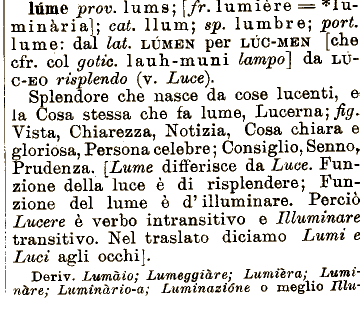 lúme prov. lums; [fr. lumière = *lu-
minària]; cat. llum; sp. lumbre; port.
lume: dal lat. LÚMEN per LÚC-MEN [che
cfr. col gotic. lauh-muni lampo] da LÚ-
C-EO risplendo (v. Luce).
Splendore che nasce da cose lucenti, e
la Cosa stessa che fa lume, Lucerna; fig.
Vista, Chiarezza, Notizia, Cosa chiara e
gloriosa, Persona celebre; Consiglio, Senno,
Prudenza. [Lume differisce da Luce. Fun-
zione della luce è di risplendere; Fun-
zione del lume è d'illuminare. Perciò
Lucere è verbo intransitivo e Illuminare
transitivo. Nel traslato diciamo Lumi e
Luci agli occhi].
Deriv. Lumàio; Lumeggiàre; Lumièra; Lumi-
nàre; Luminàrio-a; Luminazióne o meglio Illu-